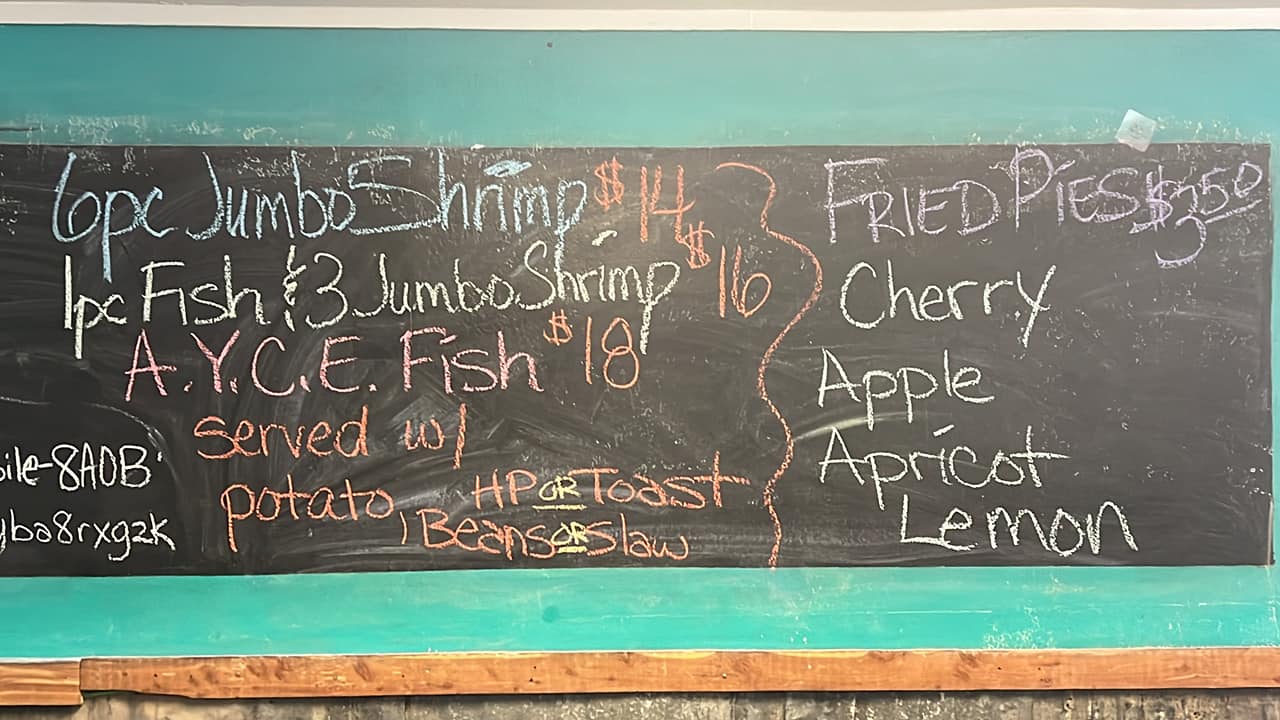 6pc Jumbo Shrimp $14
1pc Fish & 3 Jumbo Shrimp $16
A.Y.C.E. Fish $18
served w/
potato, HP OR Toast
, Beans OR Slaw
ile-8A0B
yba8rxgzk
FRIED PIES $3.50
Cherry
Apple
Apricot
Lemon